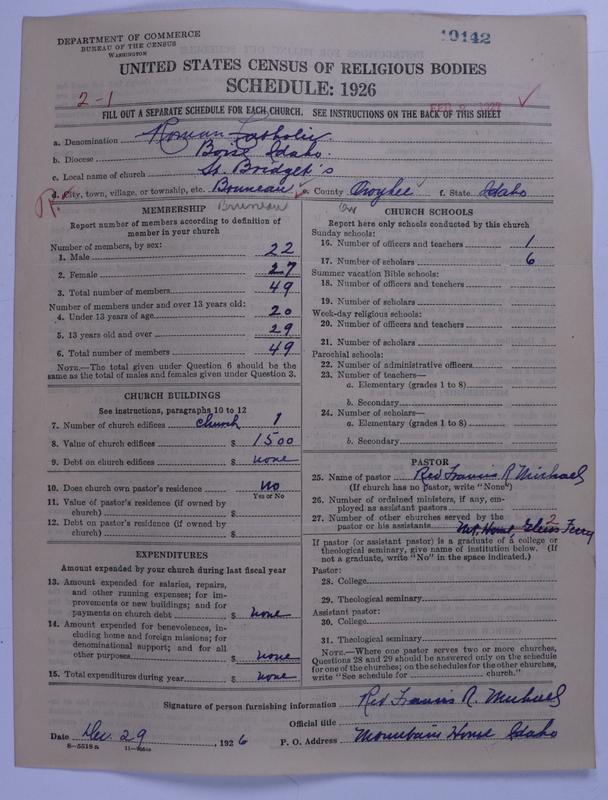 DEPARTMENT OF COMMERCE
BUREAU OF THE CENSUS
WASHINGTON
19142
UNITED STATES CENSUS OF RELIGIOUS BODIES
SCHEDULE: 1926
2-1
FILL OUT A SEPARATE SCHEDULE FOR EACH CHURCH. SEE INSTRUCTIONS ON THE BACK OF THIS SHEET
a. Denomination Roman Catholic
b. Diocese Boise Idaho
c. Local name of church St. Bridget's
d. City, town, village, or township, etc. Bruneau e. County Owyhee f. State Idaho
Bruneau Ow
MEMBERSHIP
Report number of members according to definition of member in your church
Number of members, by sex:
1. Male 22
2. Female 27
3. Total number of members 49
Number of members under and over 13 years old:
4. Under 13 years of age 20
5. 13 years old and over 29
6. Total number of members 49
NOTE.—The total given under Question 6 should be the
same as the total of males and females given under Question 3.
CHURCH BUILDINGS
See instructions, paragraphs 10 to 12
7. Number of church edifices church 1
8. Value of church edifices $ 1500
9. Debt on church edifices $ none
10. Does church own pastor's residence No
Yes or No
11. Value of pastor's residence (if owned by
church) $
12. Debt on pastor's residence (if owned by
church) $
EXPENDITURES
Amount expended by your church during last fiscal year
13. Amount expended for salaries, repairs,
and other running expenses; for im-
provements or new buildings; and for
payments on church debt $ none
14. Amount expended for benevolences, in-
cluding home and foreign missions; for
denominational support; and for all
other purposes $ none
15. Total expenditures during year $ none
CHURCH SCHOOLS
Report here only schools conducted by this church
Sunday schools:
16. Number of officers and teachers 1
17. Number of scholars 6
Summer vacation Bible schools:
18. Number of officers and teachers
19. Number of scholars
Week-day religious schools:
20. Number of officers and teachers
21. Number of scholars
Parochial schools:
22. Number of administrative officers
23. Number of teachers—
a. Elementary (grades 1 to 8)
b. Secondary
24. Number of scholars—
a. Elementary (grades 1 to 8)
b. Secondary
PASTOR
25. Name of pastor Rev Francis R Michael
(If church has no pastor, write "None")
26. Number of ordained ministers, if any, em-
ployed as assistant pastors
27. Number of other churches served by the
pastor or his assistants 2 Mt. Home, Glenns Ferry
If pastor (or assistant pastor) is a graduate of a college or
theological seminary, give name of institution below. (If
not a graduate, write "No" in the space indicated.)
Pastor:
28. College
29. Theological seminary
Assistant pastor:
30. College
31. Theological seminary
NOTE.—Where one pastor serves two or more churches,
Questions 28 and 29 should be answered only on the schedule
for one of the churches; on the schedules for the other churches,
write "See schedule for church."
Signature of person furnishing information Rev Francis R. Michael
Official title
Date Dec. 29, 1926 P. O. Address Mountain Home Idaho
8—5518 a